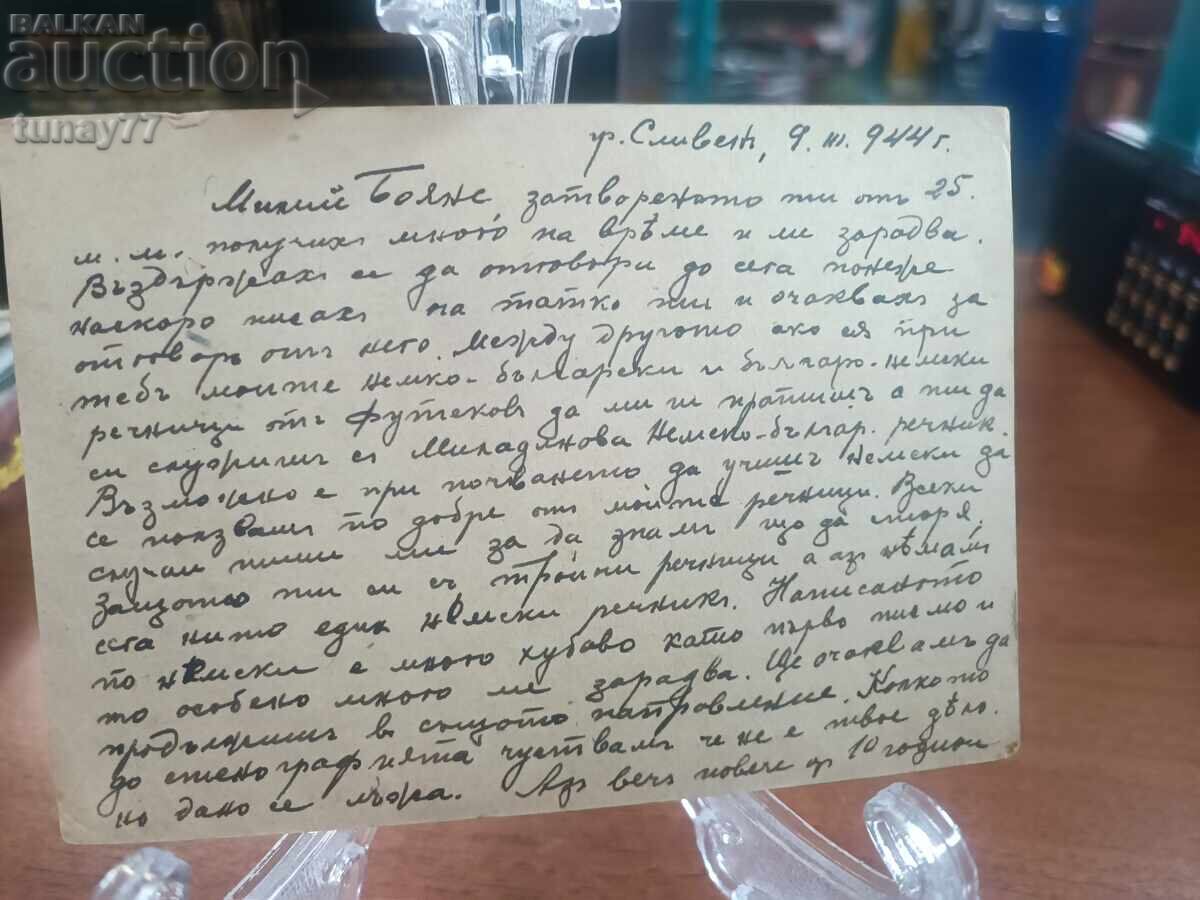 BALKAN
auction
tunay77
гр. Сливенъ, 9. III. 944 г.
Милий Бояне, затвореното ти отъ 25.
м. м. получихъ много на врѣме и ме зарадва.
Въздържахъ се да отговоря до сега понеже
наскоро писахъ на татко ти и очаквахъ за
отговоръ отъ него. Между другото ако сѫ при
тебъ моите немско-български и българо-немски
речници отъ да ми ги пратишъ а ти да
си съ Миладинова Немско-българ. речник.
Възможно е при почването да учишъ немски да
се ползвашъ по добре от мойте речници. Всеки
случай пиши ми за да знамъ що да сторя,
защото ти си съ тройни речници а азъ нѣмамъ
сега нито един немски речникъ. Написаното
по немски е много хубаво като първо писмо и
то особено много ме зарадва. Ще очаквамъ да
продължишъ въ същото направление. Колкото
до стенографията чуствамъ че не е твое дѣло.
но дано се лъжа. Азъ вече повече от 10 години